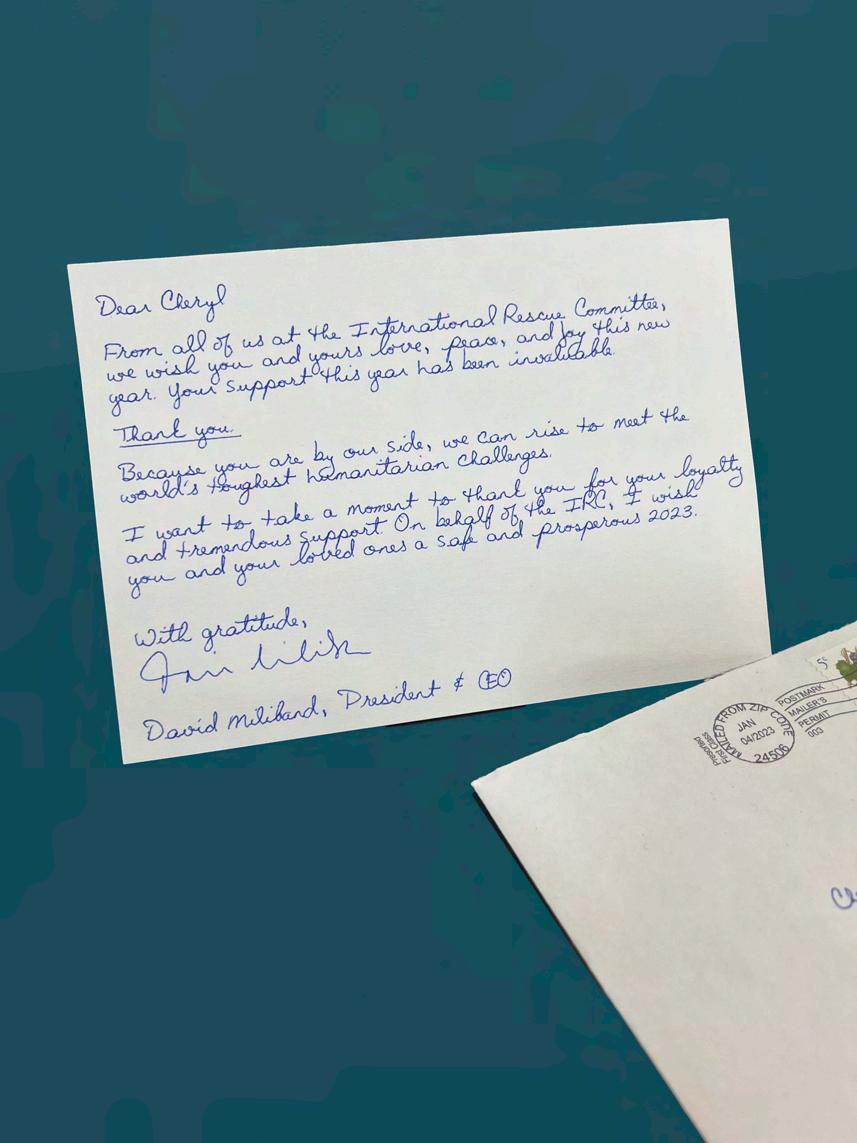 Dear Cheryl
From all of us at the International Rescue Committee,
we wish you and yours love, peace, and joy this new
year. Your support this year has been invaluable.
Thank you.
Because you are by our side, we can rise to meet the
world's toughest humanitarian challenges.
I want to take a moment to thank you for your loyalty
and tremendous support. On behalf of the IRC, I wish
you and your loved ones a safe and prosperous 2023.
With gratitude,
David Miliband, President & CEO
5c
Presorted
First Class
MAILED FROM ZIP CODE
JAN
04/2023
24506
POSTMARK
MAILER'S
PERMIT
003